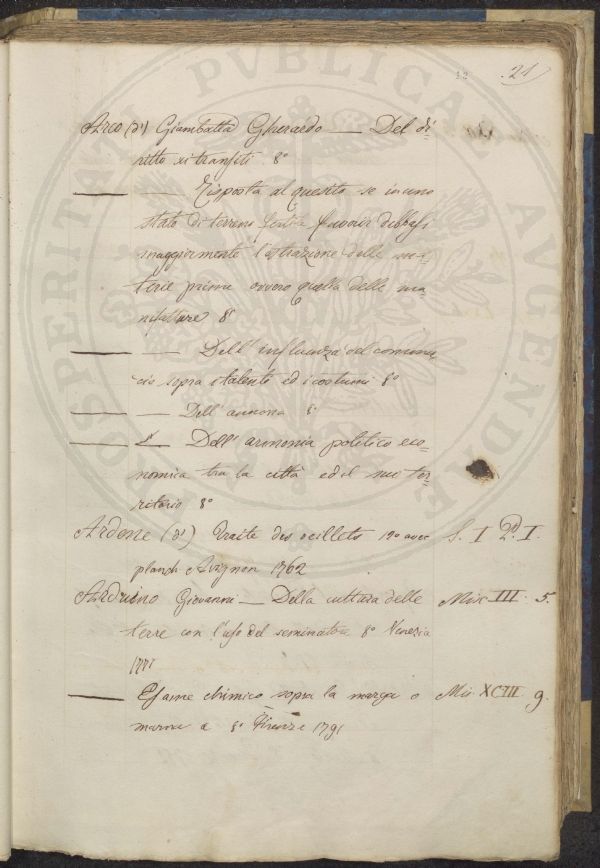 12 21
Arco (d') Giambatta Gherardo — Del di=
ritto ai transiti 8°
— — Risposta al quesito se in uno
stato di terreno fertile favorir debbasi
maggiormente l'estrazione delle ma=
terie prime ovvero quella delle ma=
nifatture 8°
— — Dell'influenza del commer
cio sopra i talenti ed i costumi 8°
— — Dell'annona 8°
— — Dell'armonia politico eco=
nomica tra la città ed il suo ter=
ritorio 8°
Ardene (d') Traité des oeillets 12° avec S. I D. I.
planch Avignon 1762
Arduino Giovanni — Della cultura delle Mis. III. 5.
terre con l'uso del seminatore 8° Venezia
— Esame chimico sopra la marga o Mis. XCIII 9.
marna a 8° Firenze 1791
PROSPERITATI PUBLICAE AVGENDAE